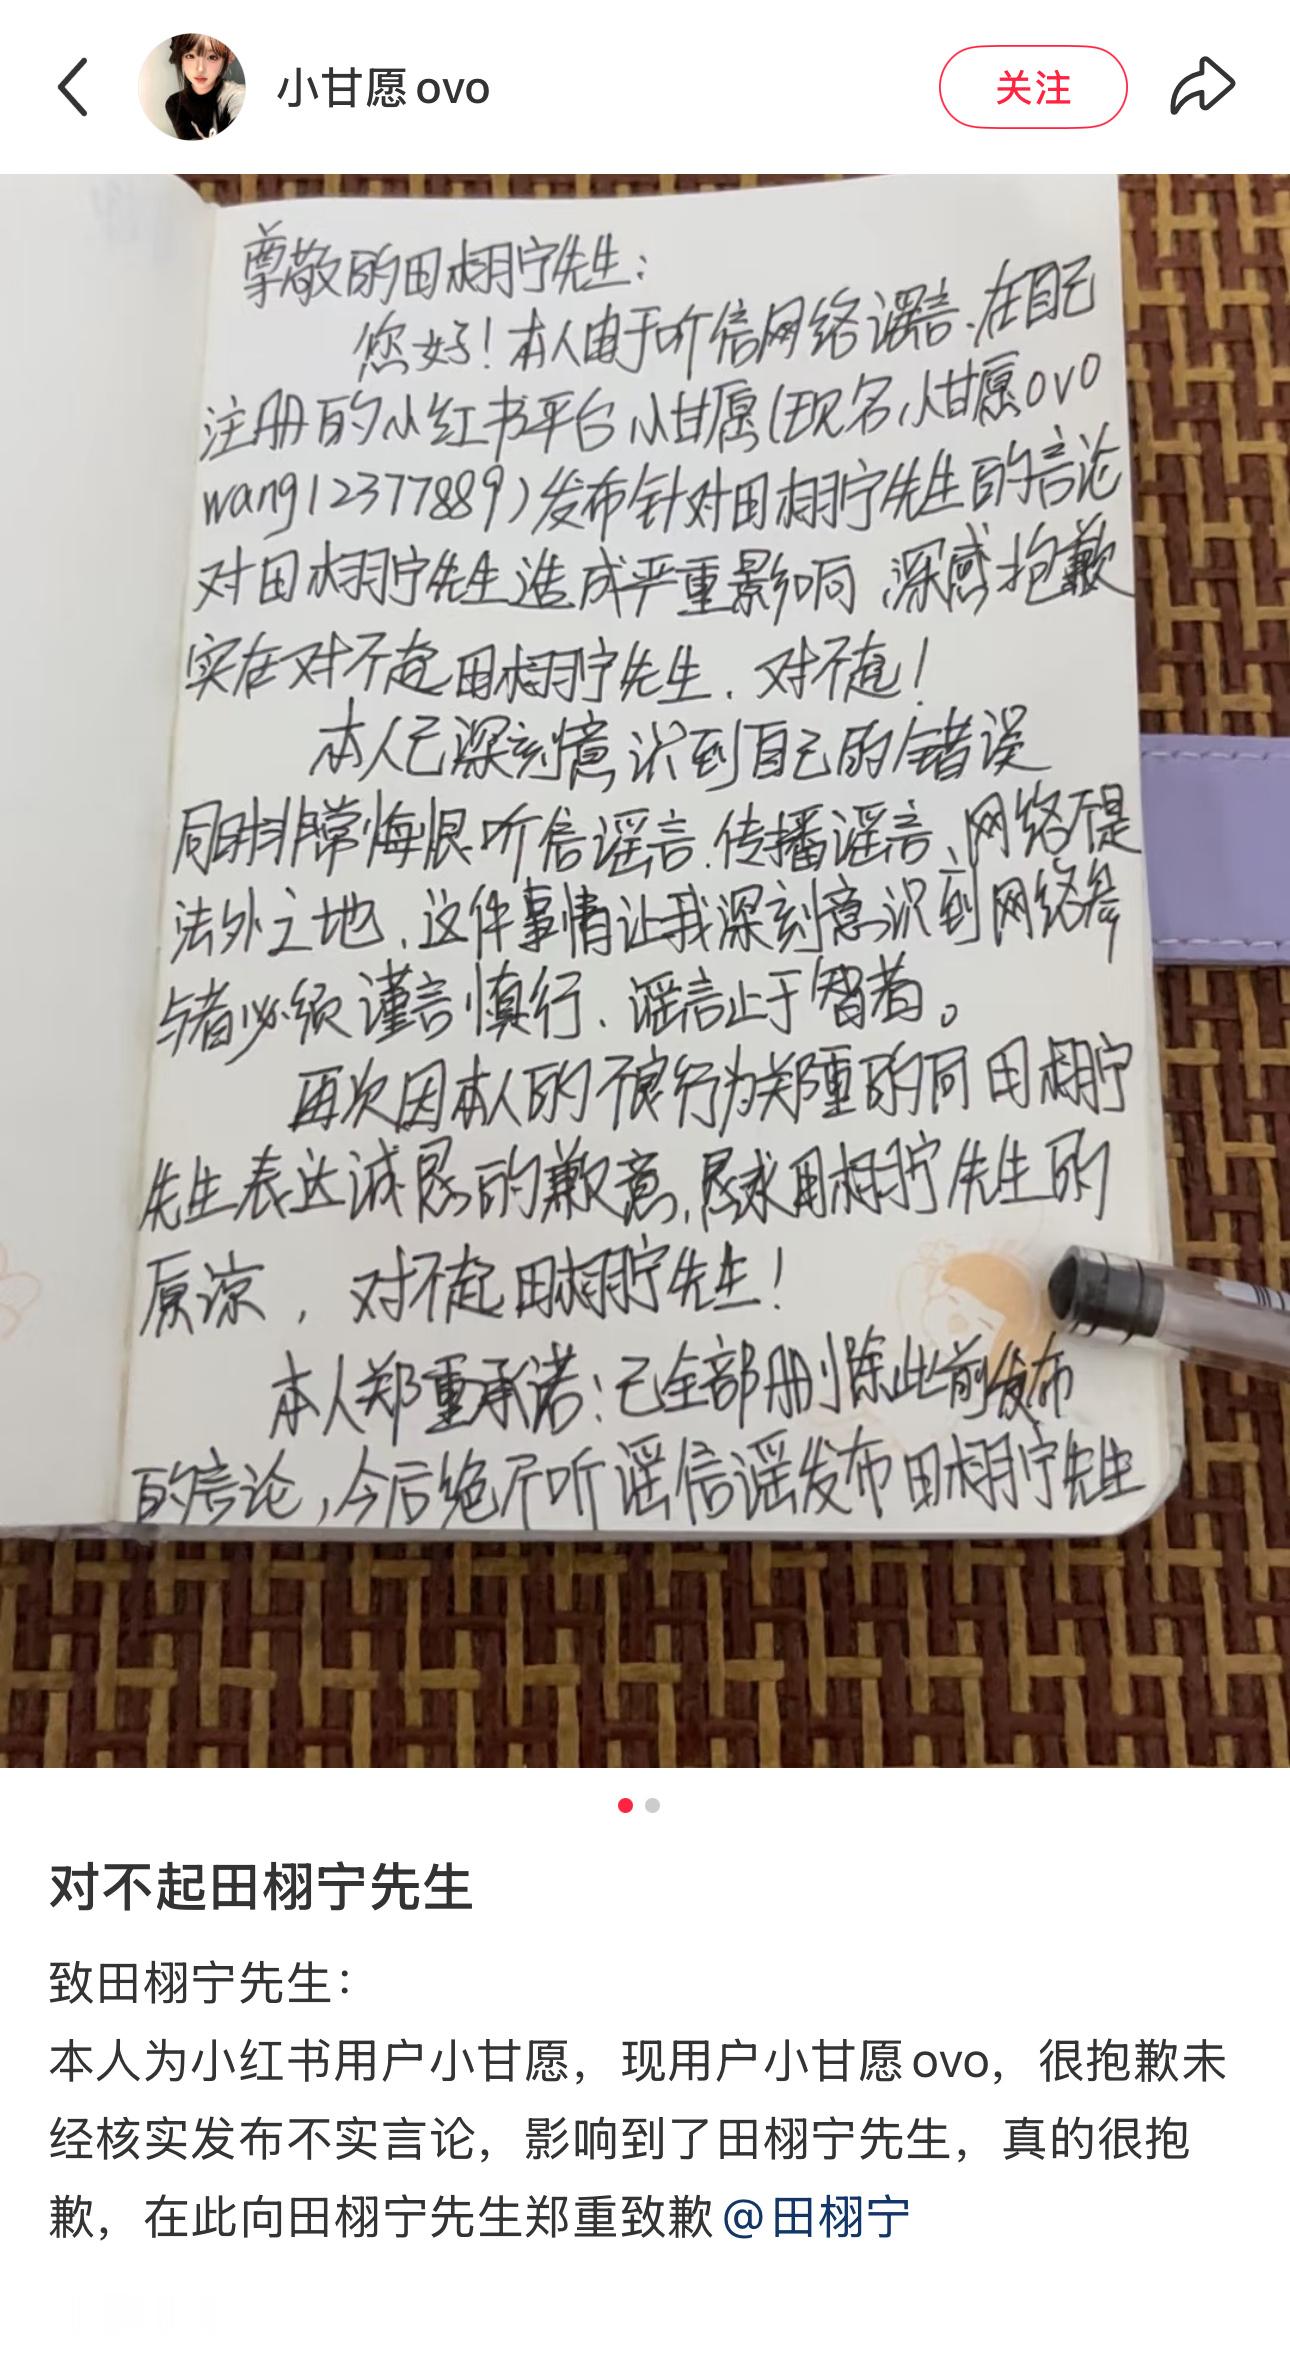 小甘愿ovo
关注
尊敬的田栩宁先生：
您好！本人由于听信网络谣言、在自己
注册的小红书平台小甘愿（现名小甘愿ovo
wang12377889）发布针对田栩宁先生的言论
对田栩宁先生造成严重影响、深感抱歉
实在对不起田栩宁先生．对不起！
本人已深刻意识到自己的错误
同时非常悔恨听信谣言．传播谣言、网络不是
法外之地、这件事情让我深刻意识到网络参
与者必须谨言慎行、谣言止于智者。
再次因本人的不良行为郑重的向田栩宁
先生表达诚恳的歉意，恳求田栩宁先生的
原谅，对不起田栩宁先生！
本人郑重承诺：已全部删除此前发布
的言论，今后绝不听谣信谣发布田栩宁先生
对不起田栩宁先生
致田栩宁先生：
本人为小红书用户小甘愿，现用户小甘愿ovo，很抱歉未
经核实发布不实言论，影响到了田栩宁先生，真的很抱
歉，在此向田栩宁先生郑重致歉@田栩宁